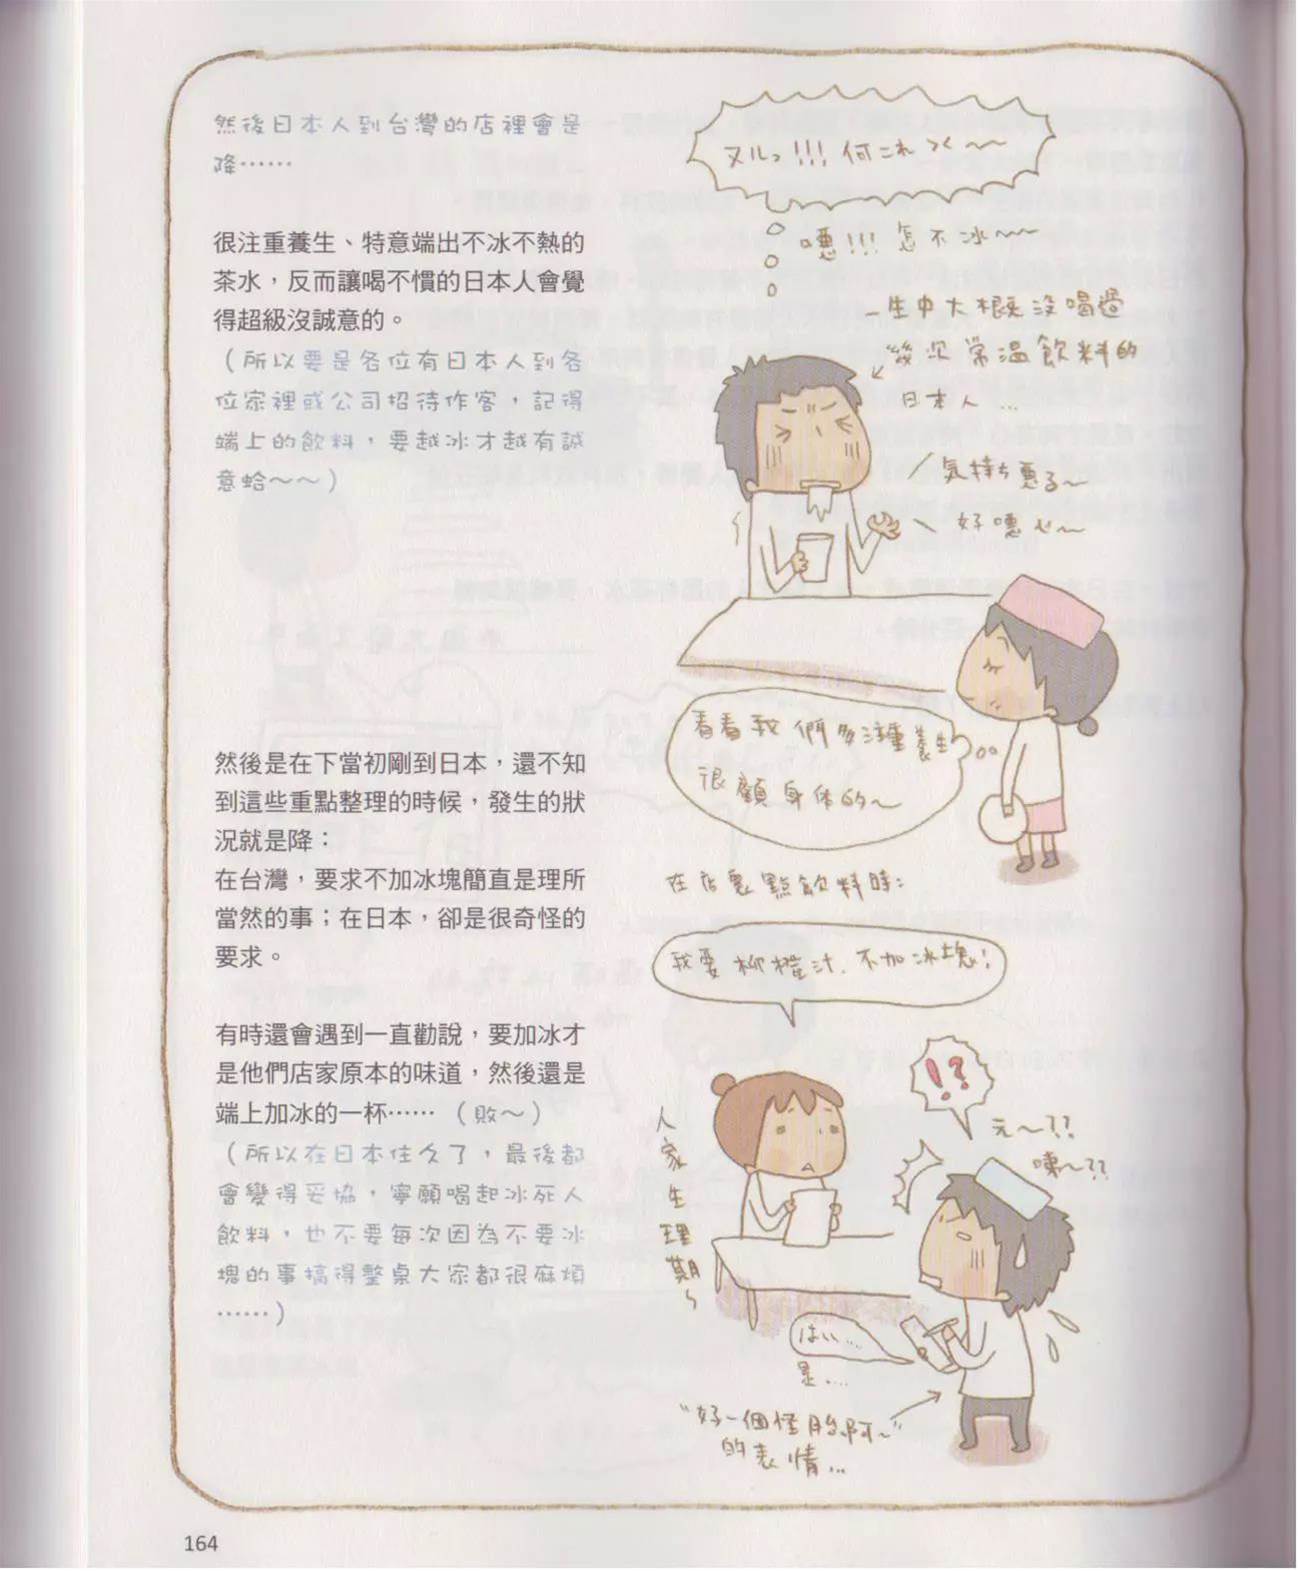 然後日本人到台灣的店裡會是
降……
很注重養生、特意端出不冰不熱的
茶水，反而讓喝不慣的日本人會覺
得超級沒誠意的。
（所以要是各位有日本人到各
位家裡或公司招待作客，記得
端上的飲料，要越冰才越有誠
意蛤～～）
然後是在下當初剛到日本，還不知
到這些重點整理的時候，發生的狀
況就是降：
在台灣，要求不加冰塊簡直是理所
當然的事；在日本，卻是很奇怪的
要求。
有時還會遇到一直勸說，要加冰才
是他們店家原本的味道，然後還是
端上加冰的一杯……（敗～）
（所以在日本住久了，最後都
會變得妥協，寧願喝起冰死人
飲料，也不要每次因為不要冰
塊的事搞得整桌大家都很麻煩
……）
ヌルっ!!!何これ
噁!!!怎不冰~~
一生中大概沒喝過
幾次常溫飲料的
日本人…
気持ち悪る~
好噁心~
看看我們多注重養生
很顧身体的~
在店裏點飲料時:
我要柳橙汁.不加冰塊!
!?
え~??
咦~??
人家生理期~
はい....
是....
"好一個怪胎啊~"
的表情...
164